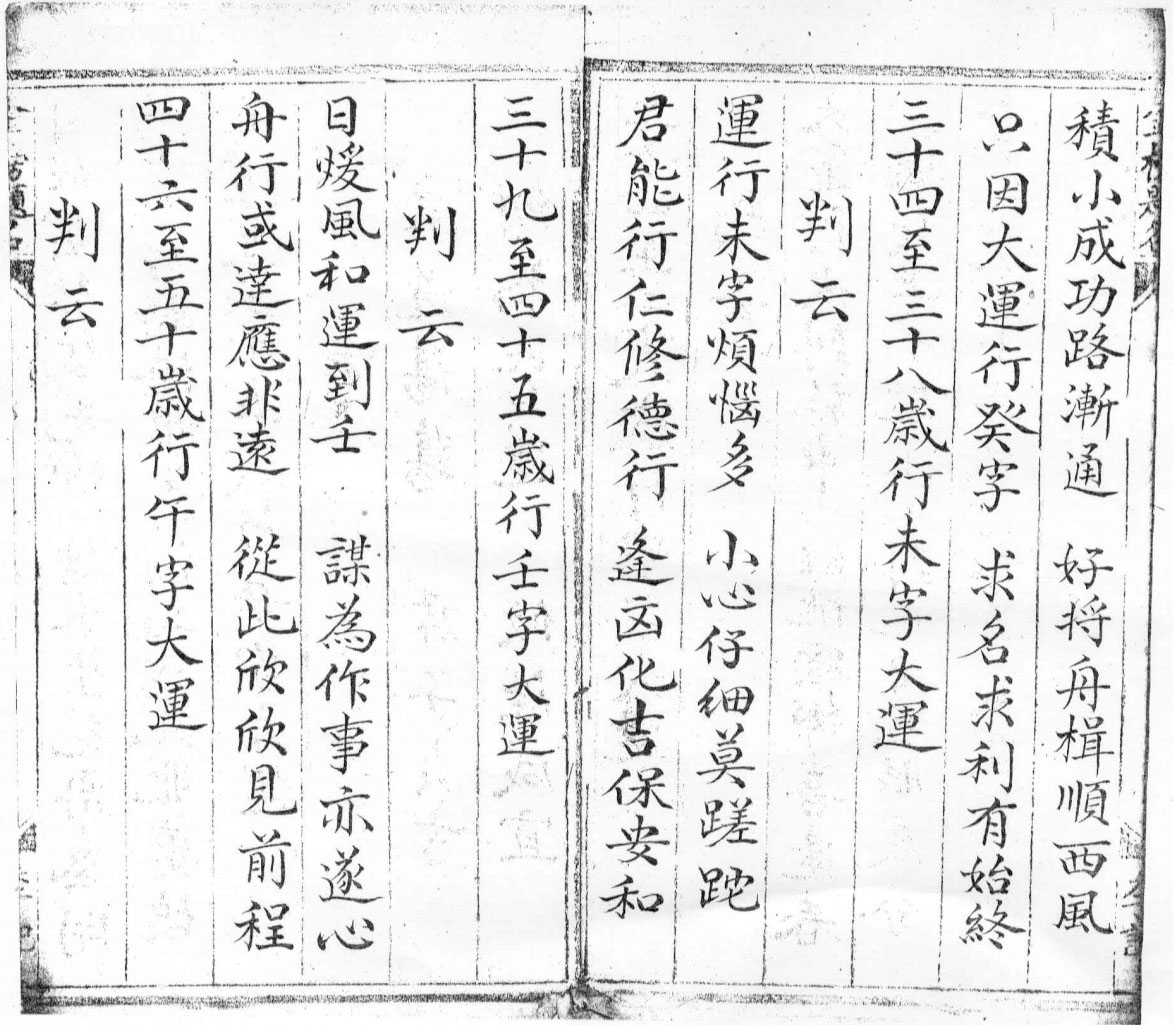 積小成功路漸通　好将舟楫順西風
只因大運行癸字　求名求利有始終
三十四至三十八歲行未字大運
判云
運行未字煩惱多　小心仔細莫蹉跎
君能行仁修德行　逢凶化吉保安和
三十九至四十五歲行壬字大運
判云
日煖風和運到壬　謀為作事亦遂心
舟行或達應非遠　從此欣欣見前程
四十六至五十歲行午字大運
判云